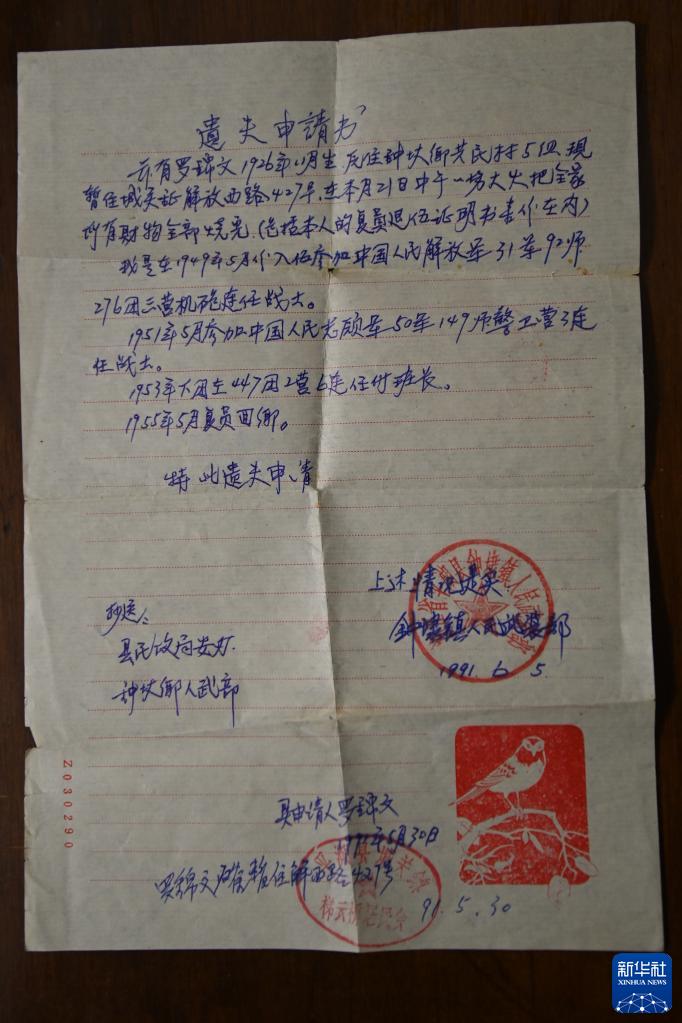 遗失申請书
兹有罗锦文1926年11月生,民住钟坎鄉共民村5组,現
暂住城关証解放西路427号,在本月21日中午一場大火把全家
所有財物全部烧光(包括本人的复員退伍证明书壹份在内)
我是在1949年5月份入伍参加中国人民解放军31军92师
276团三营机砲連任战士。
1951年5月参加中国人民志願軍50军149师警卫营3连
任战士。
1953年下团在447团2营6连任付班长。
1955年5月复員回鄉。
特此遗失申请
上述情况是实
人民武装部
1991. 6. 5.
抄送:
县民政局安办.
钟坎鄉人武部
具申请人罗锦文
1991年5月30日
罗锦文 解放西路427号
91.5.30
Z030290
新华社
XINHUA NEWS